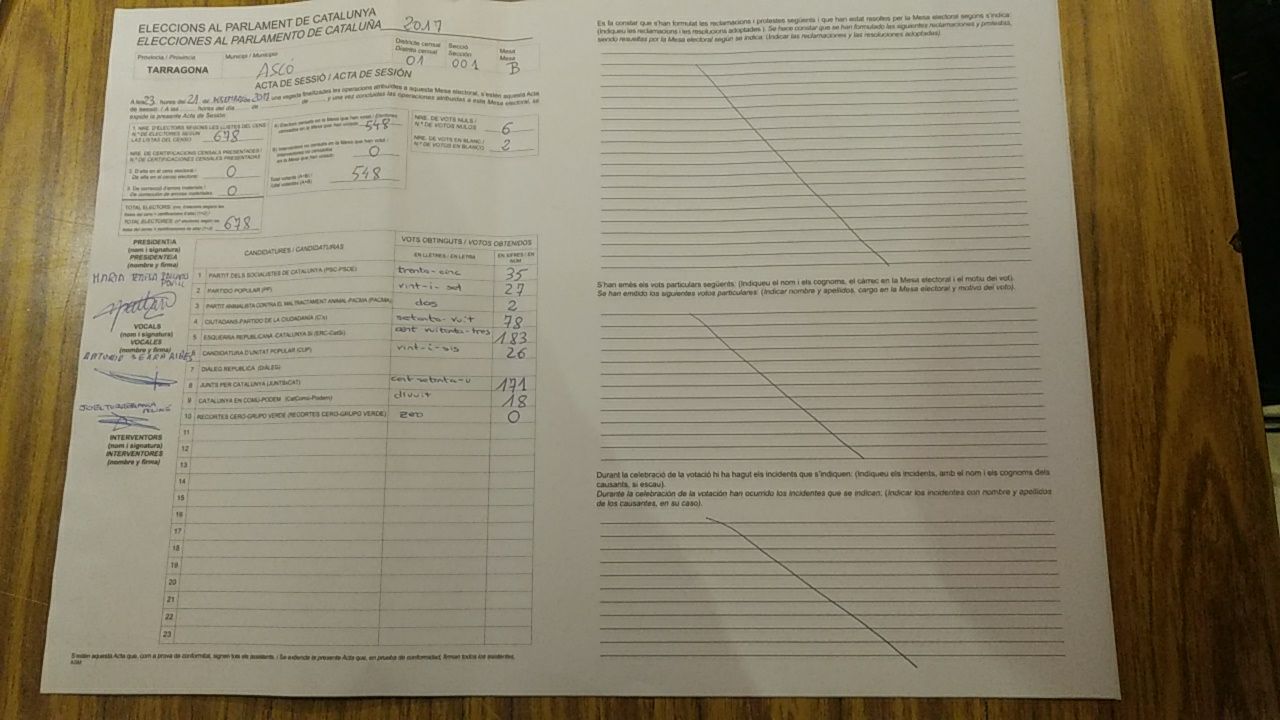 ELECCIONS AL PARLAMENT DE CATALUNYA
ELECCIONES AL PARLAMENTO DE CATALUÑA 2017
Província / Provincia
TARRAGONA
Municipi / Municipio
ASCÓ
Districte censal
Distrito censal
01
Secció
Sección
001
Mesa
Mesa
B
ACTA DE SESSIÓ / ACTA DE SESIÓN
A les 23 hores del 21 de DESEMBRE de 2017 una vegada finalitzades les operacions atribuïdes a aquesta Mesa electoral, s'estén aquesta Acta
de sessió. / A las ........ horas del día ........ de ........ de ........ y una vez concluidas las operaciones atribuidas a esta Mesa electoral, se
expide la presente Acta de Sesión
1. NRE. D'ELECTORS SEGONS LES LLISTES DEL CENS
N.º DE ELECTORES SEGÚN
LAS LISTAS DEL CENSO
678
NRE. DE CERTIFICACIONS CENSALS PRESENTADES /
N.º DE CERTIFICACIONES CENSALES PRESENTADAS
2. D'alta en el cens electoral /
De alta en el censo electoral:
0
3. De correcció d'errors materials /
De corrección de errores materiales
0
TOTAL ELECTORS:
TOTAL ELECTORES:
678
A) Electors censats en la Mesa que han votat / Electores
censados en la Mesa que han votado
548
B) Interventors no censats en la Mesa que han votat /
Interventores no censados
en la Mesa que han votado:
0
Total votants (A+B) /
Total votantes (A+B)
548
NRE. DE VOTS NULS /
N.º DE VOTOS NULOS
6
NRE. DE VOTS EN BLANC /
N.º DE VOTOS EN BLANCO
2
PRESIDENT/A
(nom i signatura)
PRESIDENTE/A
(nombre y firma)
MARIA TERESA
VOCALS
(nom i signatura)
VOCALES
(nombre y firma)
ANTONIO SERRA RIBES
INTERVENTORS
(nom i signatura)
INTERVENTORES
(nombre y firma)
CANDIDATURES / CANDIDATURAS
VOTS OBTINGUTS / VOTOS OBTENIDOS
EN LLETRES / EN LETRA
EN XIFRES / EN NÚM
1 PARTIT DELS SOCIALISTES DE CATALUNYA (PSC-PSOE) trenta-cinc 35
2 PARTIDO POPULAR (PP) vint-i-set 27
3 PARTIT ANIMALISTA CONTRA EL MALTRACTAMENT ANIMAL-PACMA (PACMA) dos 2
4 CIUTADANS-PARTIDO DE LA CIUDADANÍA (C's) setanta-vuit 78
5 ESQUERRA REPUBLICANA-CATALUNYA SÍ (ERC-CatSí) cent vuitanta-tres 183
6 CANDIDATURA D'UNITAT POPULAR (CUP) vint-i-sis 26
7 DIÀLEG REPUBLICÀ (DIÀLEG)
8 JUNTS PER CATALUNYA (JUNTSxCAT) cent setanta-u 171
9 CATALUNYA EN COMÚ-PODEM (CatComú-Podem) divuit 18
10 RECORTES CERO-GRUPO VERDE (RECORTES CERO-GRUPO VERDE) zero 0
11
12
13
14
15
16
17
18
19
20
21
22
23
S'estén aquesta Acta que, com a prova de conformitat, signen tots els assistents. / Se extiende la presente Acta que, en prueba de conformidad, firman todos los asistentes.
Es fa constar que s'han formulat les reclamacions i protestes següents i que han estat resoltes per la Mesa electoral segons s'indica:
(Indiqueu les reclamacions i les resolucions adoptades ). Se hace constar que se han formulado las siguientes reclamaciones y protestas,
siendo resueltas por la Mesa electoral según se indica: (Indicar las reclamaciones y las resoluciones adoptadas)
S'han emès els vots particulars següents: (Indiqueu el nom i els cognoms, el càrrec en la Mesa electoral i el motiu del vot).
Se han emitido los siguientes votos particulares: (Indicar nombre y apellidos, cargo en la Mesa electoral y motivo del voto).
Durant la celebració de la votació hi ha hagut els incidents que s'indiquen: (Indiqueu els incidents, amb el nom i els cognoms dels
causants, si escau).
Durante la celebración de la votación han ocurrido los incidentes que se indican: (Indicar los incidentes con nombre y apellidos
de los causantes, en su caso).